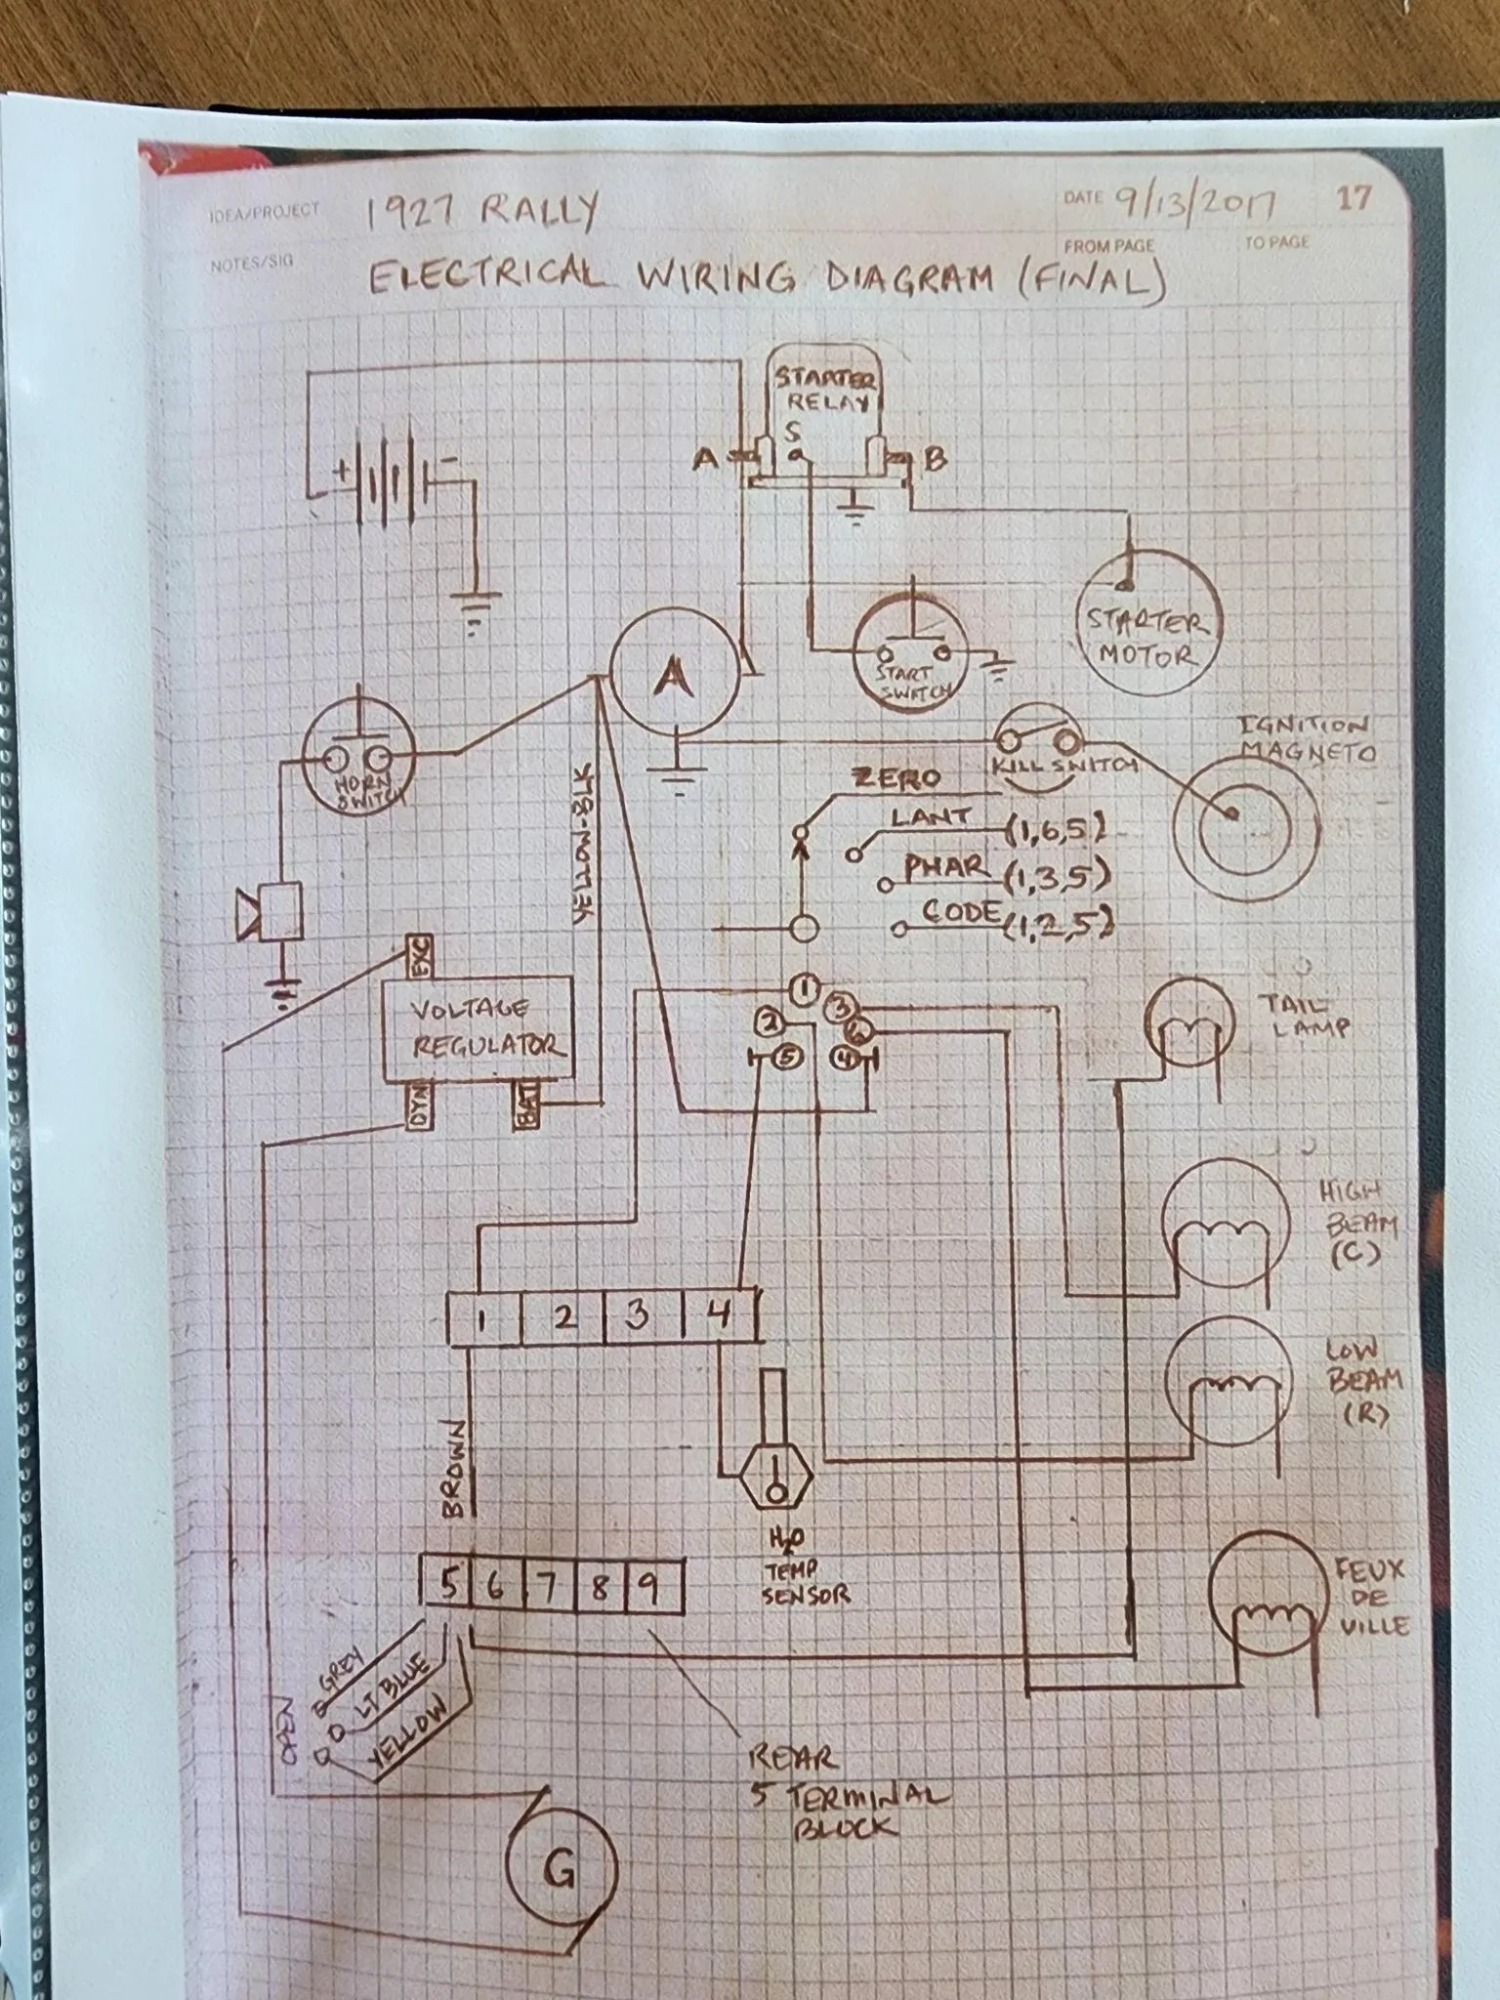 IDEA/PROJECT 1927 RALLY
DATE 9/13/2017 17
NOTES/SIG
FROM PAGE TO PAGE
ELECTRICAL WIRING DIAGRAM (FINAL)
STARTER
RELAY
S
A
B
+
-
A
START
SWITCH
STARTER
MOTOR
HORN
SWITCH
IGNITION
MAGNETO
KILL SWITCH
YELLOW-BLK
ZERO
LANT (1,6,5)
PHAR (1,3,5)
CODE (1,2,5)
EXC
VOLTAGE
REGULATOR
DYN
BAT
1
2
3
6
5
4
TAIL
LAMP
HIGH
BEAM
(C)
LOW
BEAM
(R)
1 2 3 4
BROWN
H2O
TEMP
SENSOR
5 6 7 8 9
FEUX
DE
VILLE
OPEN
GREY
LT BLUE
YELLOW
REAR
5 TERMINAL
BLOCK
G